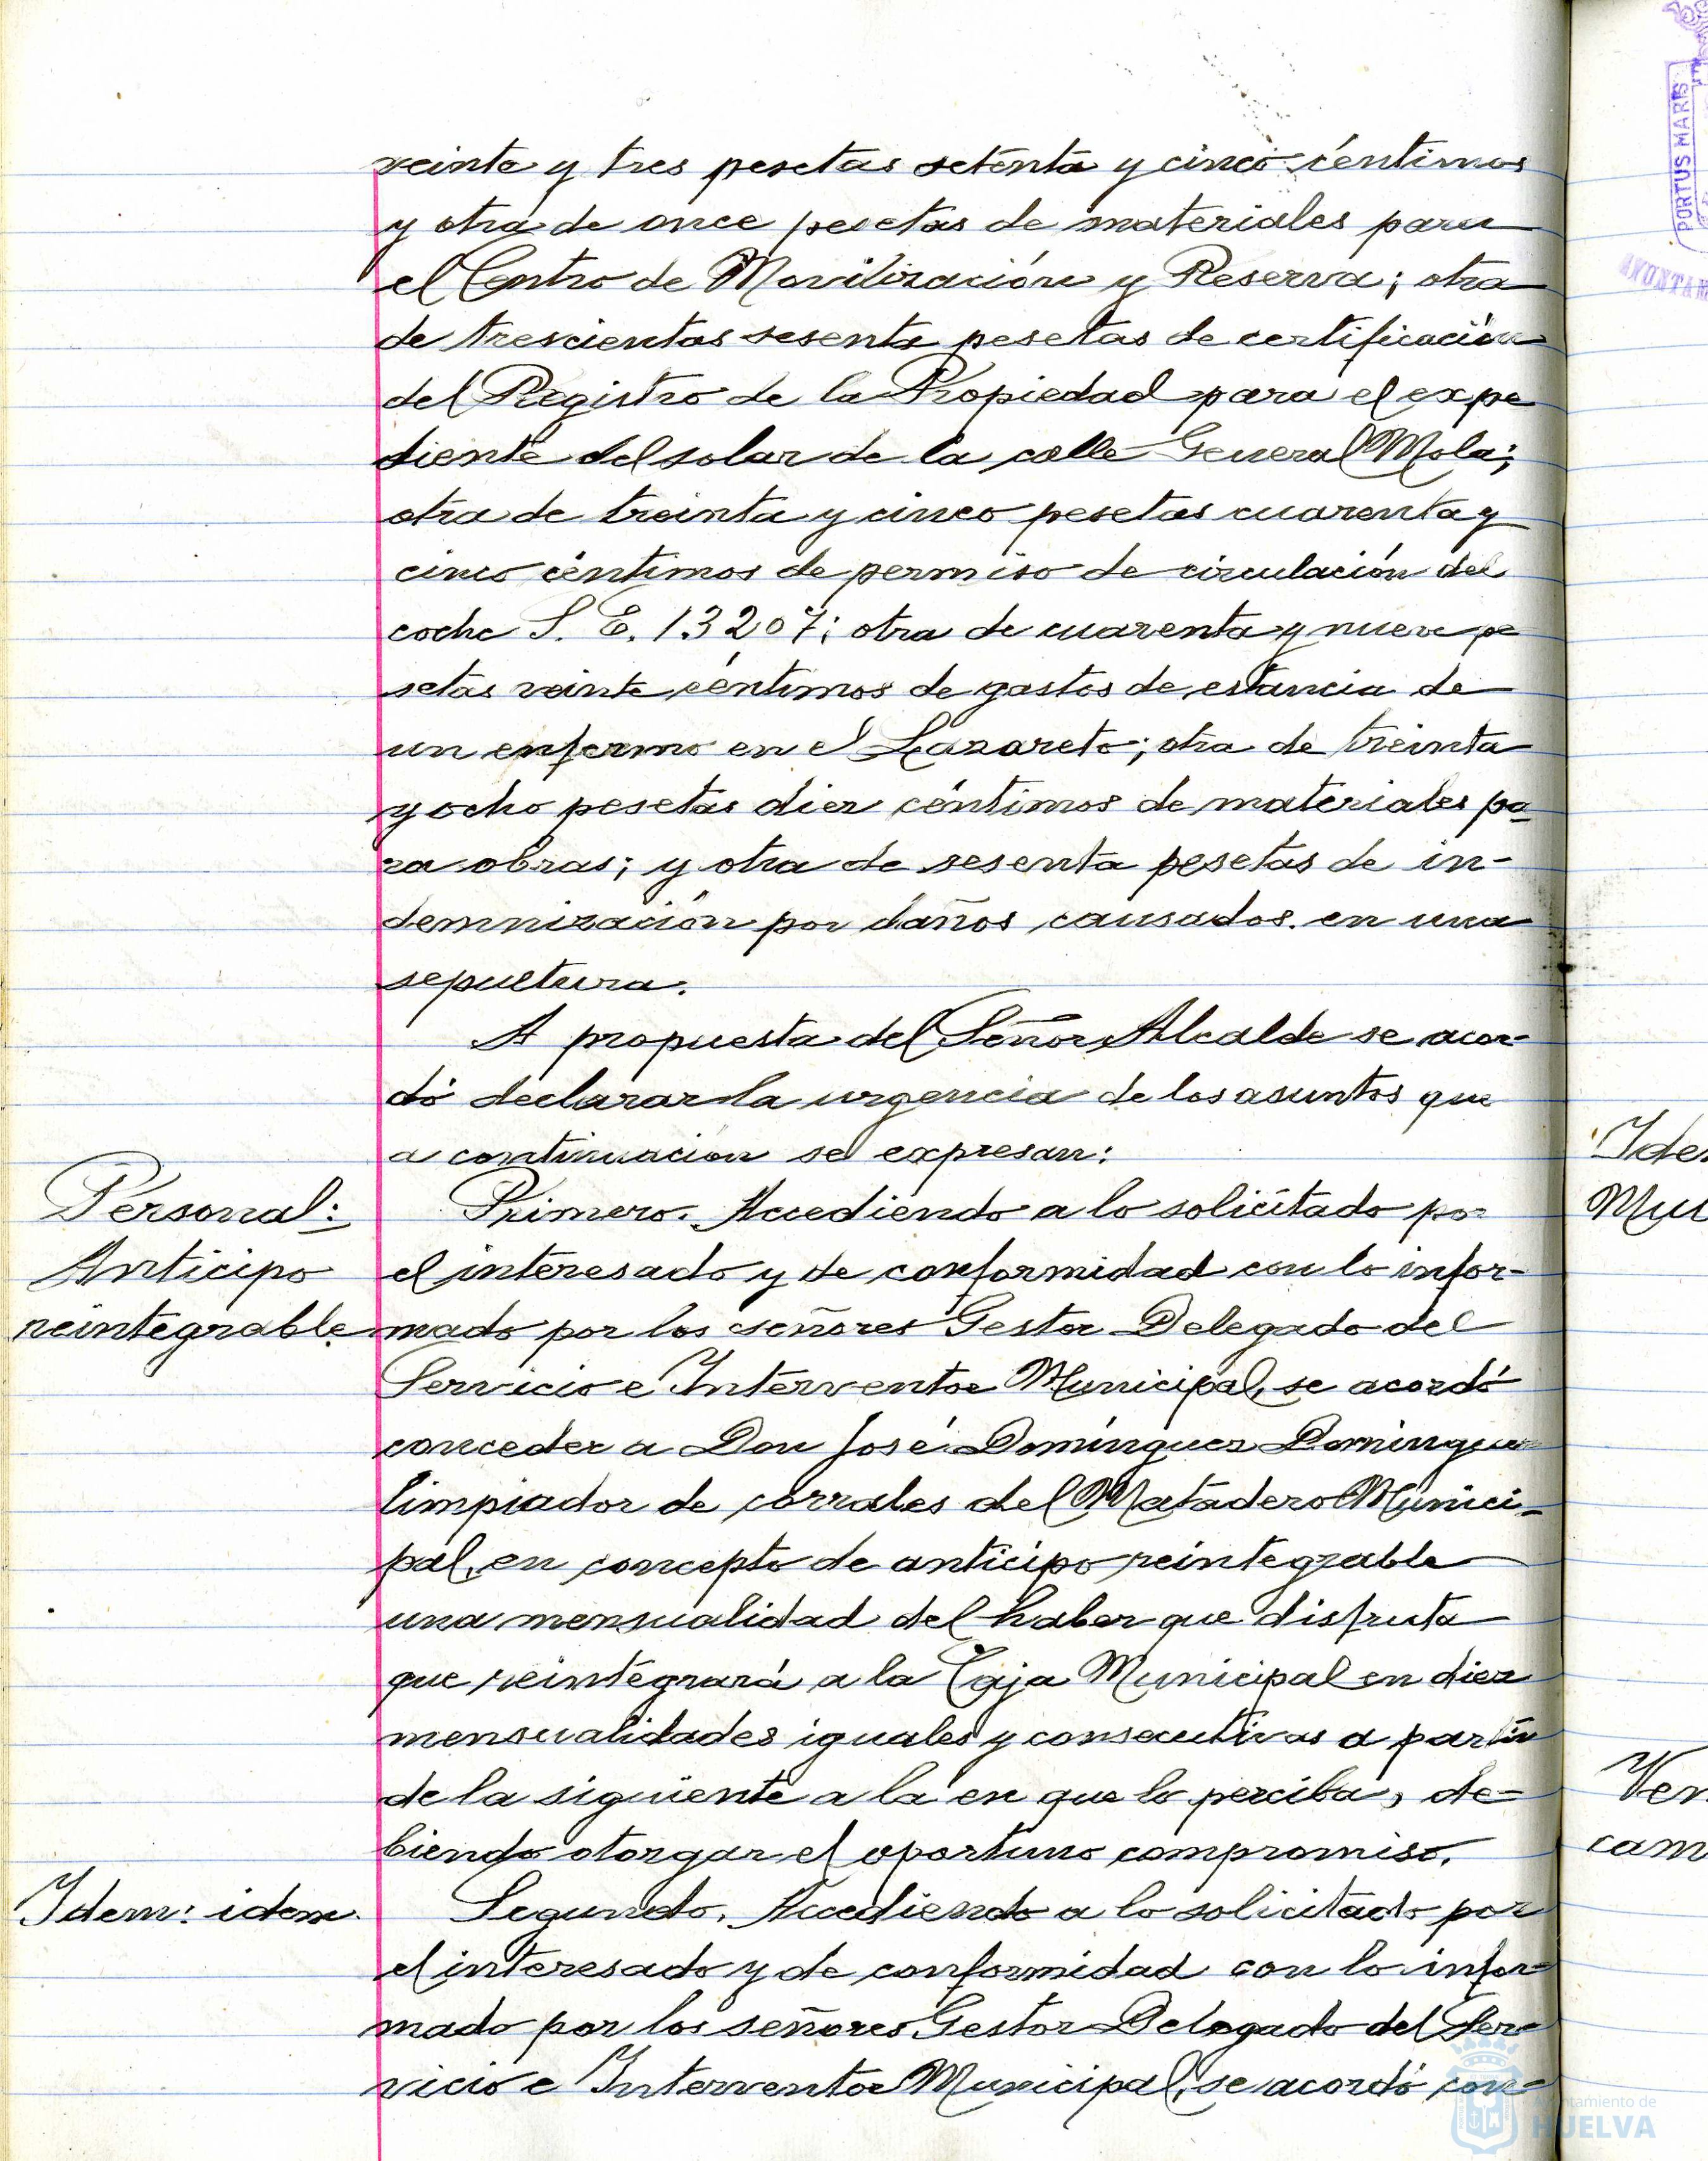 veinte y tres pesetas setenta y cinco céntimos
y otra de once pesetas de materiales para
el Centro de Movilización y Reserva; otra
de trescientas sesenta pesetas de certificación
del Registro de la Propiedad para el expe
diente del solar de la calle General Mola;
otra de treinta y cinco pesetas cuarenta y
cinco céntimos de permiso de circulación del
coche S. E. 13207; otra de cuarenta y nueve pe
setas veinte céntimos de gastos de estancia de
un enfermo en el Lazareto; otra de treinta
y ocho pesetas diez céntimos de materiales pa
ra obras; y otra de sesenta pesetas de in-
demnización por daños causados en una
sepultura.
A propuesta del Señor Alcalde se acor-
dó declarar la urgencia de los asuntos que
a continuación se expresan:
Personal:
Anticipo
reintegrable.
Primero. Accediendo a lo solicitado por
el interesado y de conformidad con lo infor-
mado por los señores Gestor Delegado del
Servicio e Interventor Municipal, se acordó
conceder a Don José Domínguez Domínguez
limpiador de corrales del Matadero Munici-
pal, en concepto de anticipo reintegrable
una mensualidad del haber que disfruta
que reintegrará a la Caja Municipal en diez
mensualidades iguales y consecutivas a partir
de la siguiente a la en que lo perciba, de-
biendo otorgar el oportuno compromiso.
Idem: idem.
Segundo. Accediendo a lo solicitado por
el interesado y de conformidad con lo infor-
mado por los señores Gestor Delegado del Ser-
vicio e Interventor Municipal, se acordó con-
PORTUS MARIS
Ayuntamiento de
HUELVA